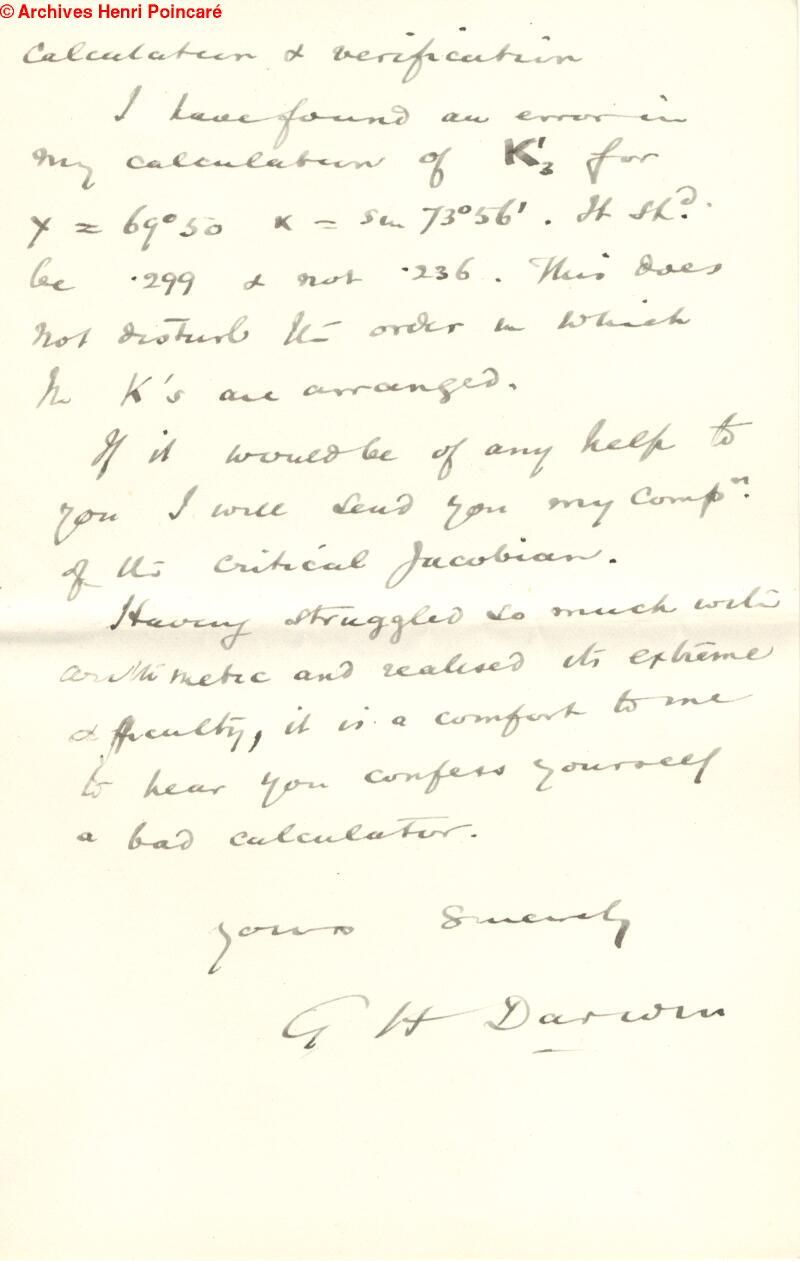 © Archives Henri Poincaré
calculation & verification
I have found an error in
my calculation of K'₃ for
γ = 69°50 κ = sin 73°56'. It shᵈ.
be ·299 & not ·236. This does
not disturb the order in which
the K's are arranged.
If it would be of any help to
you I will send you my compⁿ.
of the critical Jacobian.
Having struggled so much with
arithmetic and realised its extreme
difficulty, it is a comfort to me
to hear you confess yourself
a bad calculator.
Yours Sincerely
G H Darwin